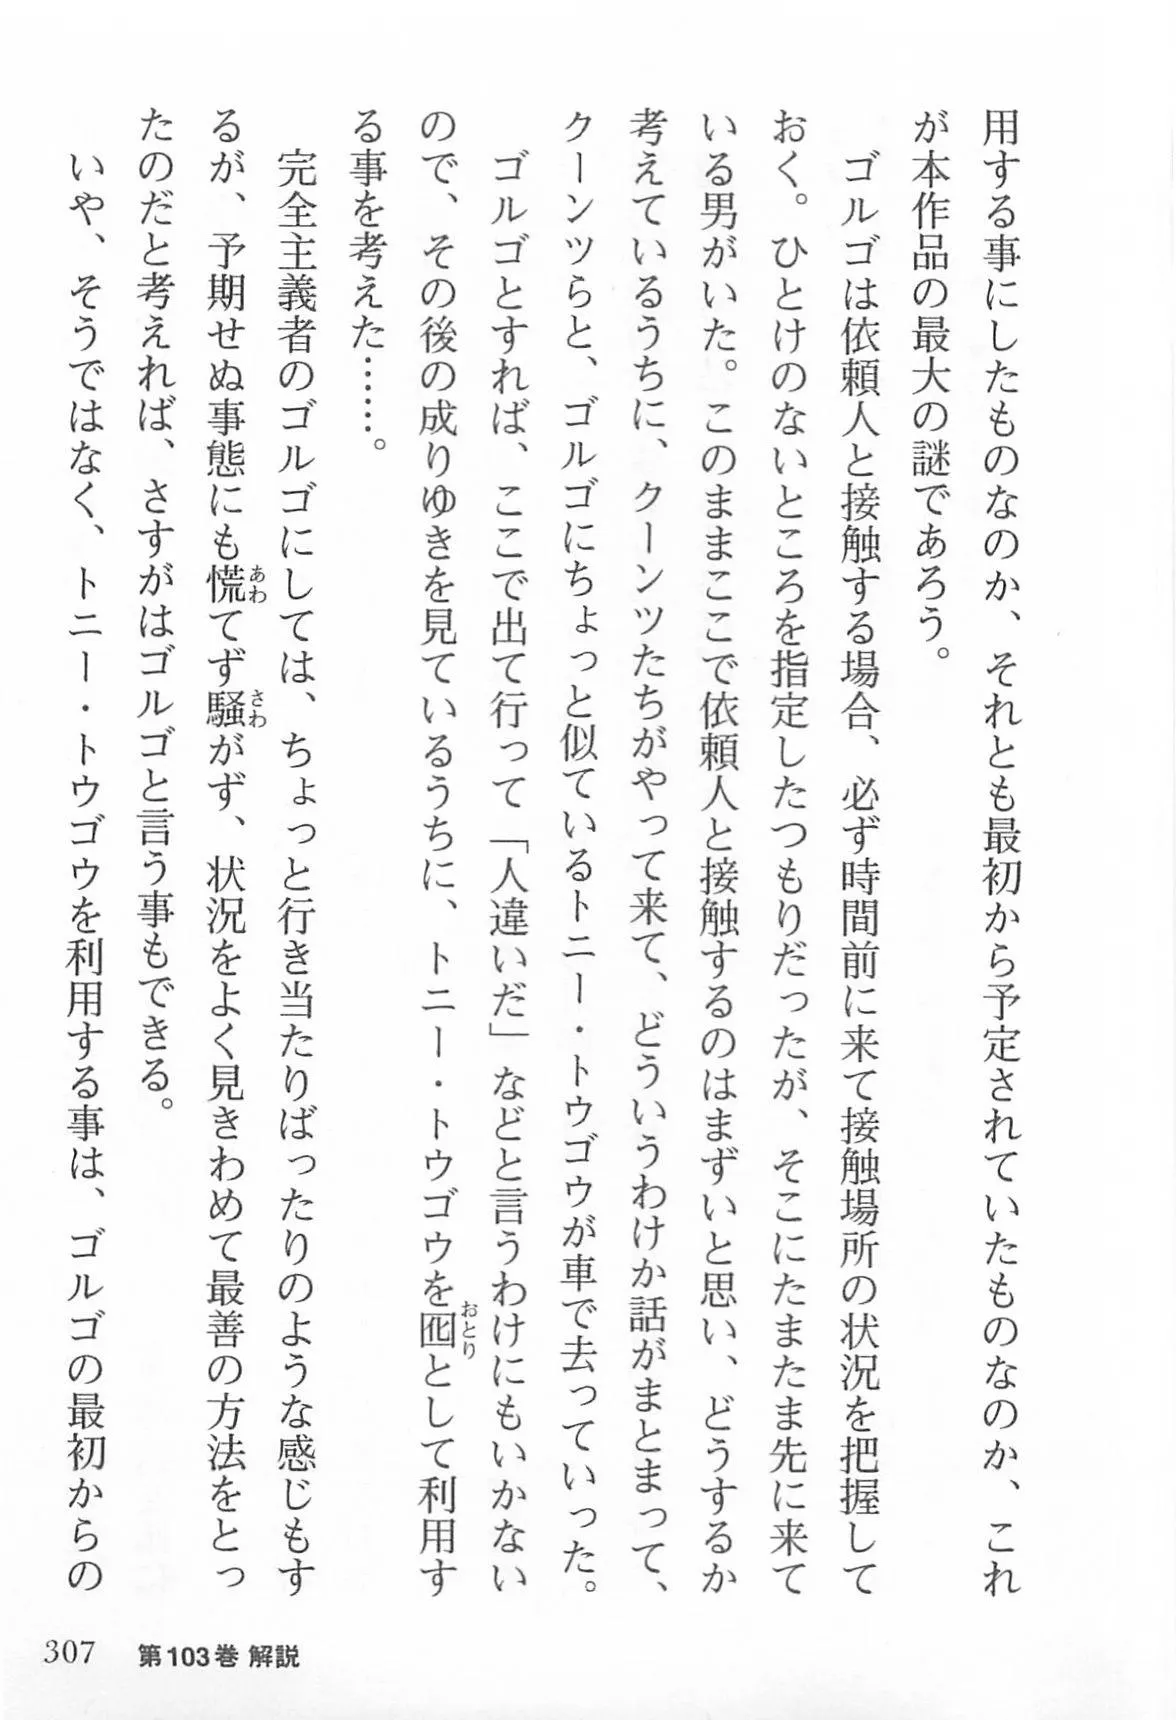 用する事にしたものなのか、それとも最初から予定されていたものなのか、これ
が本作品の最大の謎であろう。
ゴルゴは依頼人と接触する場合、必ず時間前に来て接触場所の状況を把握して
おく。ひとけのないところを指定したつもりだったが、そこにたまたま先に来て
いる男がいた。このままここで依頼人と接触するのはまずいと思い、どうするか
考えているうちに、クーンツたちがやって来て、どういうわけか話がまとまって、
クーンツらと、ゴルゴにちょっと似ているトニー・トウゴウが車で去っていった。
ゴルゴとすれば、ここで出て行って「人違いだ」などと言うわけにもいかない
ので、その後の成りゆきを見ているうちに、トニー・トウゴウを囮おとりとして利用す
る事を考えた……。
完全主義者のゴルゴにしては、ちょっと行き当たりばったりのような感じもす
るが、予期せぬ事態にも慌あわてず騒さわがず、状況をよく見きわめて最善の方法をとっ
たのだと考えれば、さすがはゴルゴと言う事もできる。
いや、そうではなく、トニー・トウゴウを利用する事は、ゴルゴの最初からの
307 第103巻 解説